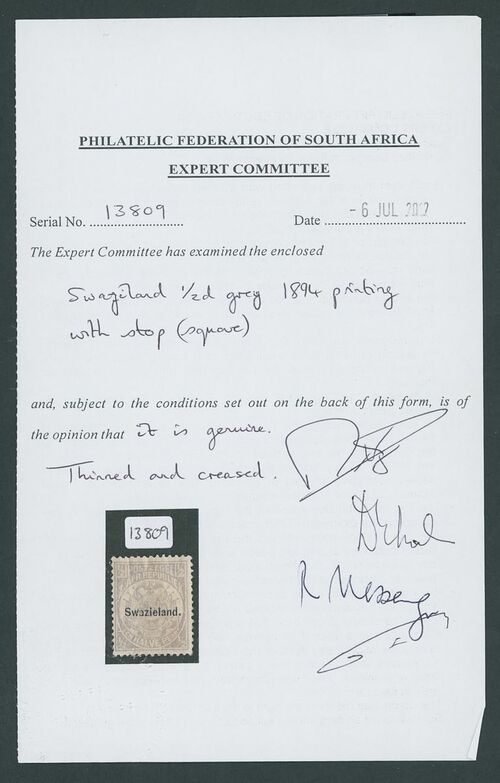 PHILATELIC FEDERATION OF SOUTH AFRICA
EXPERT COMMITTEE
Serial No. 13809
Date - 6 JUL
The Expert Committee has examined the enclosed
Swaziland ½d grey 1894 printing
with stop (square)
and, subject to the conditions set out on the back of this form, is of
the opinion that it is genuine.
Thinned and creased.
13809
Swazieland.
R Messenger